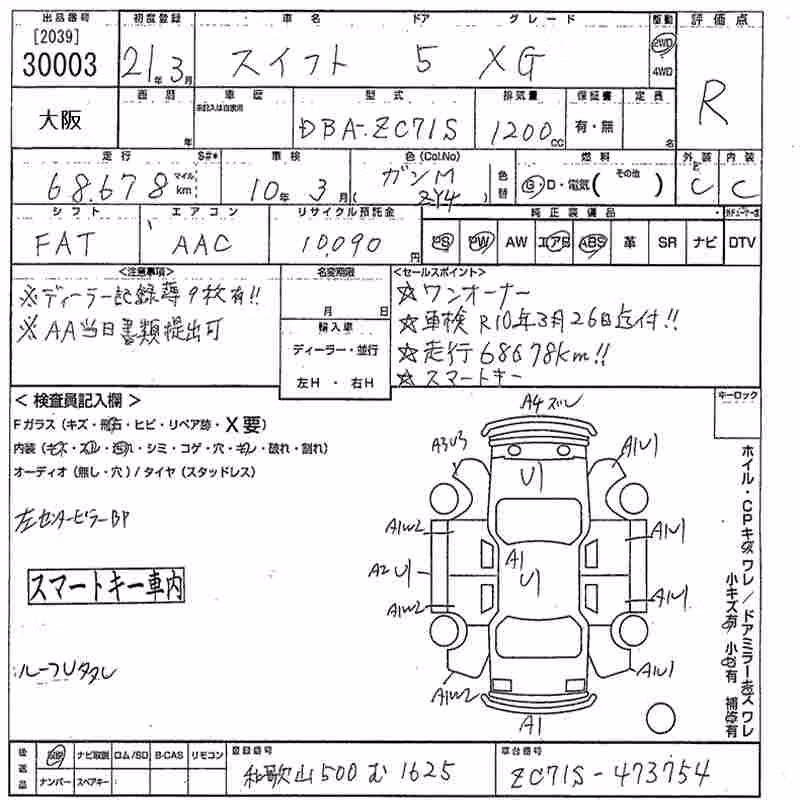 出品番号 初度登録 車名 ドア グレード 駆動 評価点
[2039]
30003 21年 3月 スイフト 5 XG 2WD 4WD R
大阪 西暦 車歴 型式 排気量 保証書 定員
未記入は自家用
年 DBA-ZC71S 1200cc 有・無 名
走行 S#* 車検 色(Col.No) 燃料 外装 内装
68.678 マイル km 10年 3月 ガンM ZY4 色替 G・D・電気( その他 ) C C
シフト エアコン リサイクル預託金 純正装備品
FAT AAC 10,090円 PS PW AW エアB ABS 革 SR ナビ DTV
<注意事項> 名変期限 <セールスポイント>
※ディーラー記録簿9枚有!! ☆ワンオーナー
※AA当日書類提出可 月 日 ☆車検R10年3月26日迄付!!
輸入車 ☆走行68678km!!
ディーラー・並行 ☆スマートキー
左H・右H
<検査員記入欄> キーロック
Fガラス(キズ・飛石・ヒビ・リペア跡・X要)
内装(キズ・スレ・汚れ・シミ・コゲ・穴・キレ・破れ・割れ)
オーディオ(無し・穴)/タイヤ(スタッドレス)
左センターピラーBP
スマートキー車内
ルーフUタタレ
A4ズレ
A3U3 U1 A1U1
A1W2 A1U1
A2U1 A1 U1
A1W2 A1U1
A1W2 A1U1
A1
ホイル・CPキズワレ/ドアミラーキズワレ
小キズ有 小凹有 補修有
後送品 取説 ナビ取説 ロム/SD B-CAS リモコン 登録番号 車台番号
ナンバー スペアキー 和歌山500む1625 ZC71S-473754